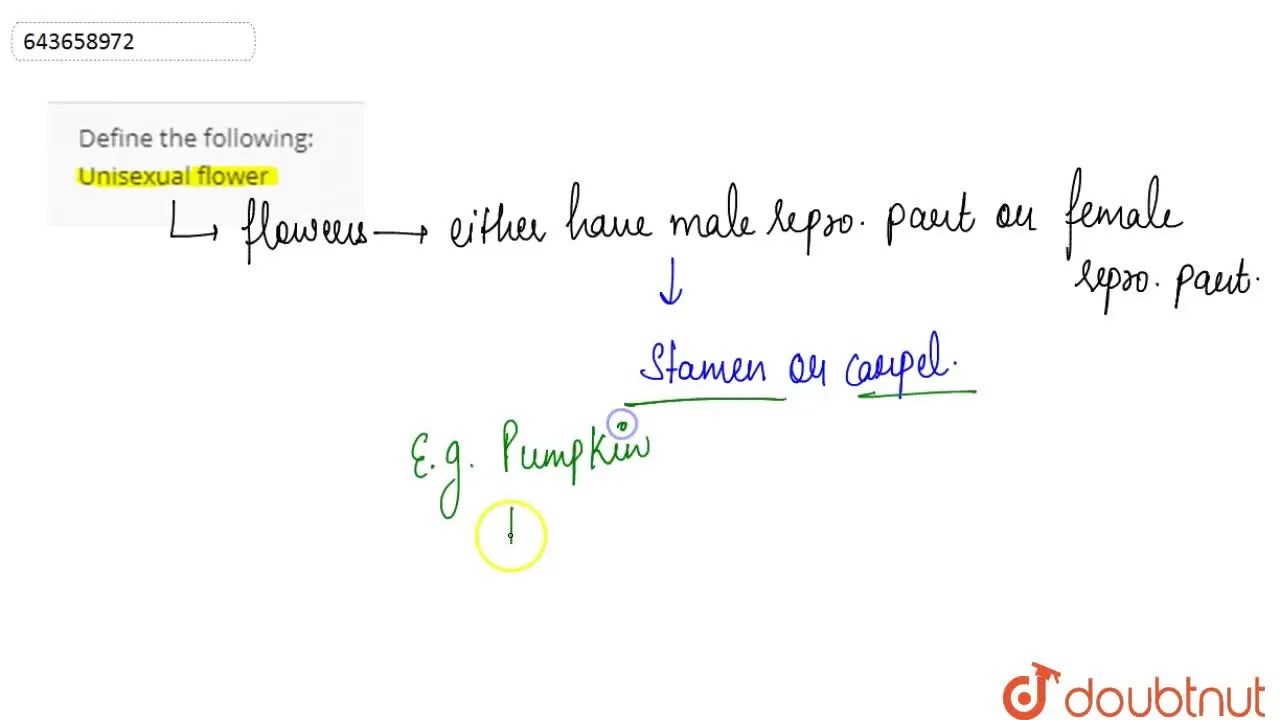 643658972
Define the following:
Unisexual flower
flowers → either have male repro. part or female
repro. part.
Stamen or carpel.
E.g. Pumpkin
doubtnut